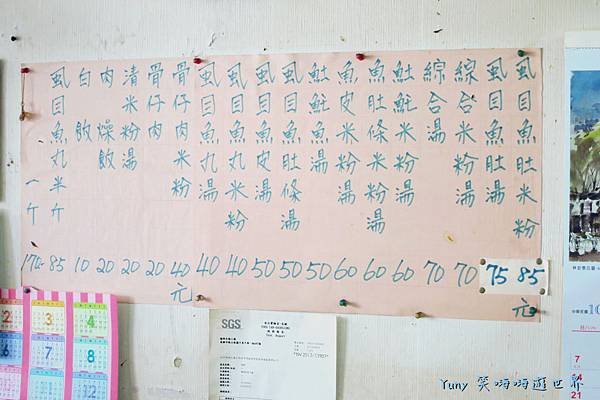 虱目魚肚米粉 85元
虱目魚肚湯 75
綜合米粉湯 70
綜合湯 70
魠米粉湯 60
魚肚條米粉湯 60
魚皮米粉湯 60
魠湯 50
虱目魚肚條湯 50
虱目魚皮湯 50
虱目魚丸米粉 40
虱目魚丸湯 40
骨仔肉米粉 40元
骨仔肉 20
清米粉湯 20
肉燥飯 20
白飯 10
虱目魚丸半斤 85
一斤 170-
SGS
2
3
4
6
7
8
10
11
12
7
14
21
Yuny 笑嗨嗨遊世界